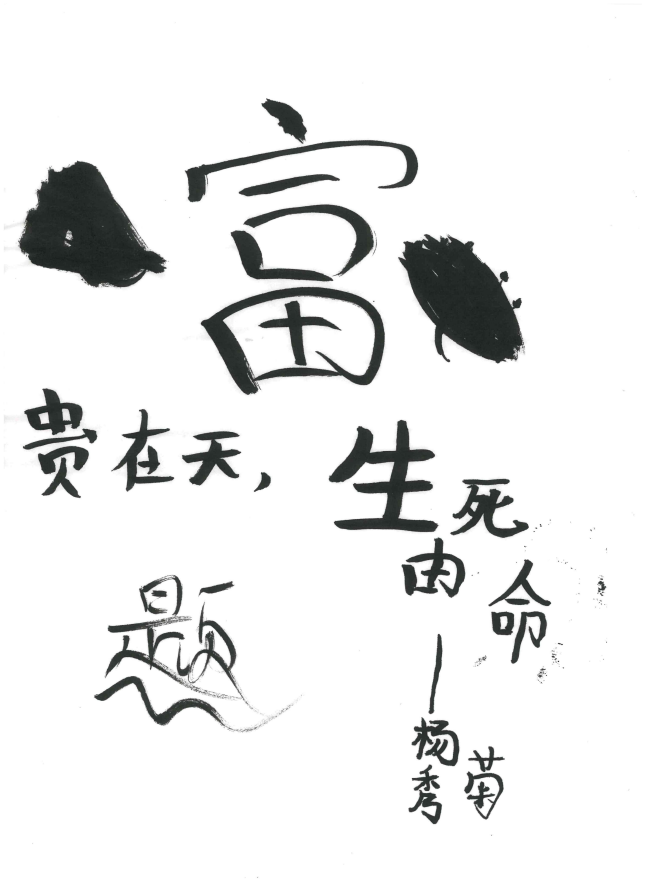 富
贵在天，生死由命
题
—杨秀菊